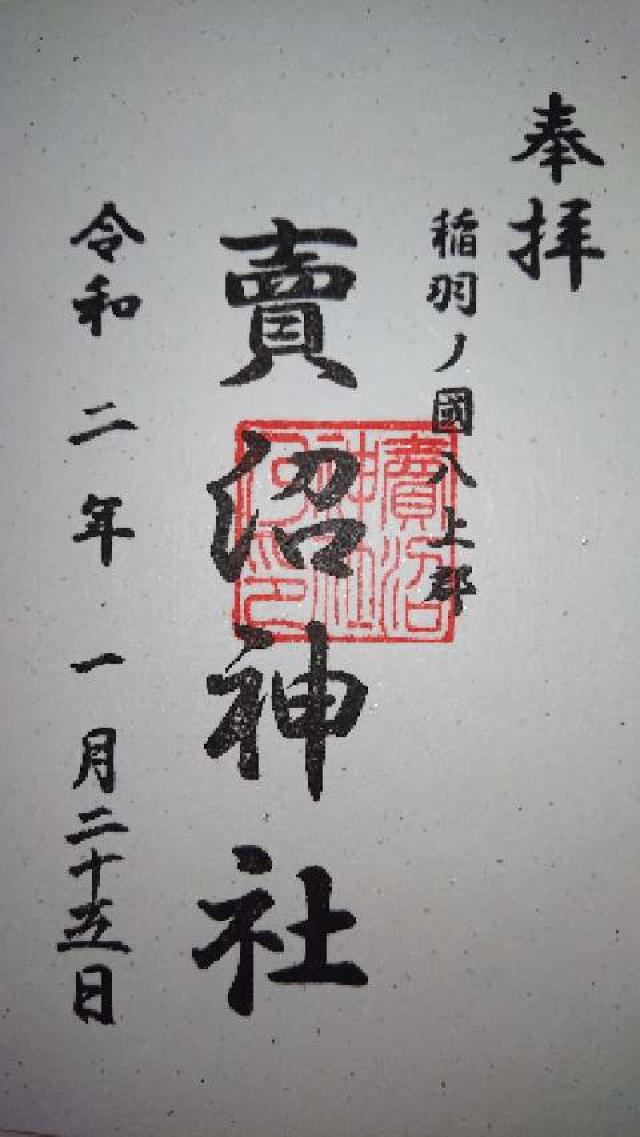 奉拝
稲羽ノ國八上郡
賣沼神社
令和二年一月二十五日
賣沼
神社
之印